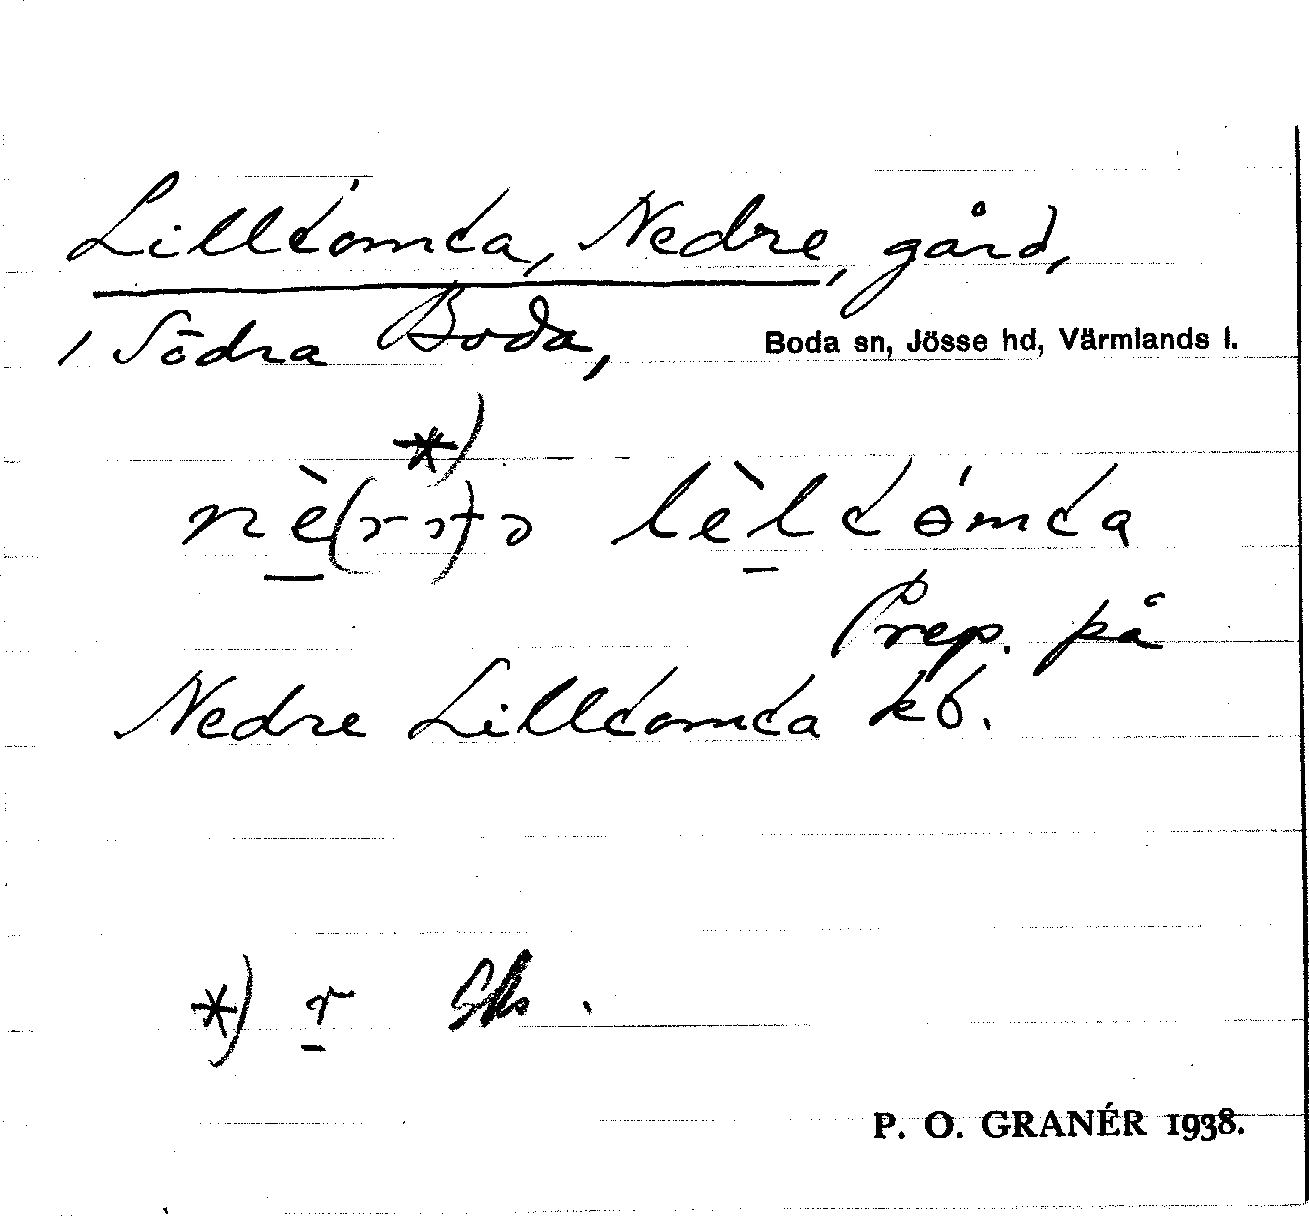 Lilltomta, Nedre, gård,
i Södra Boda, Boda sn, Jösse hd, Värmlands l.
*)
lèltɵ́mta
Prep. på
Nedre Lilltomta kb.
*) r
P. O. GRANÉR 1938.